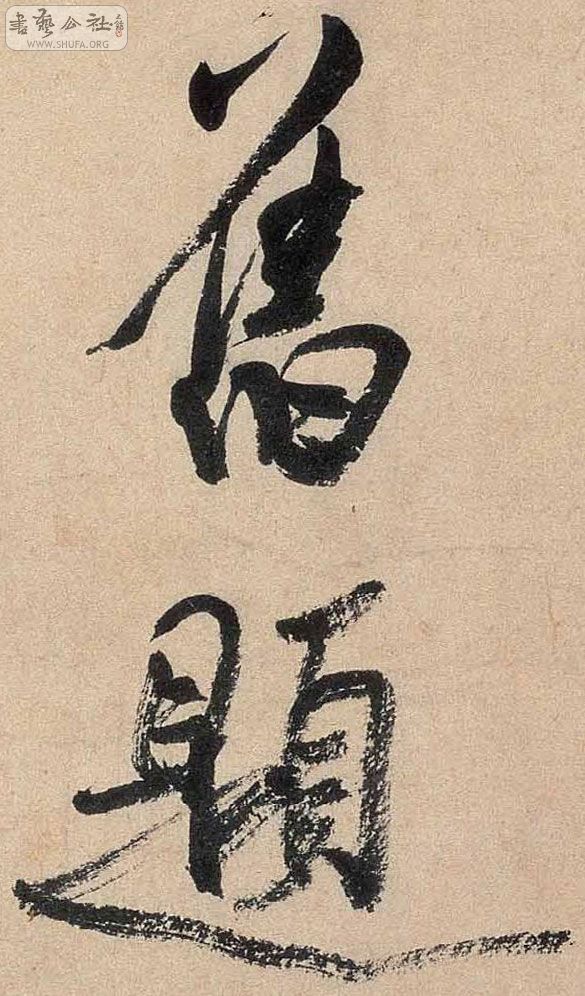 書藝公社
WWW.SHUFA.ORG
舊題